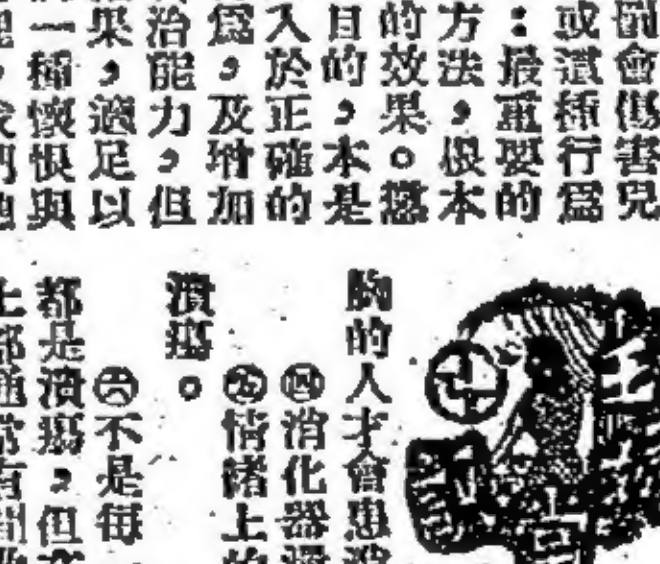 會傷害兒
或這種行爲
：最重要的
方法，根本
的效果。懲
目的，本是
入於正確的
爲，及增加
治能力，但
果，適足以
一種懷恨與
的人才會患
㊃消化器
㊄情緒上的
潰瘍。
㊅不是每
都是潰瘍，但
上都通常有